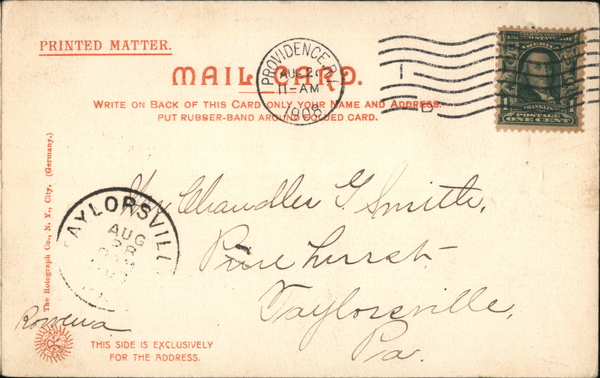 PRINTED MATTER.
MAIL CARD.
WRITE ON BACK OF THIS CARD ONLY YOUR NAME AND ADDRESS.
PUT RUBBER-BAND AROUND FOLDED CARD.
PROVIDENCE, R.I.
AUG 2
11-AM
1906
AMERICA
FRANKLIN
POSTAGE
ONE CENT
1
D
The Rotograph Co., N. Y., City. (Germany.)
TAYLORSVILL
AUG
28
Chandler G. Smith,
Pine hurst
Taylorsville,
Pa.
Rowena
THIS SIDE IS EXCLUSIVELY
FOR THE ADDRESS.